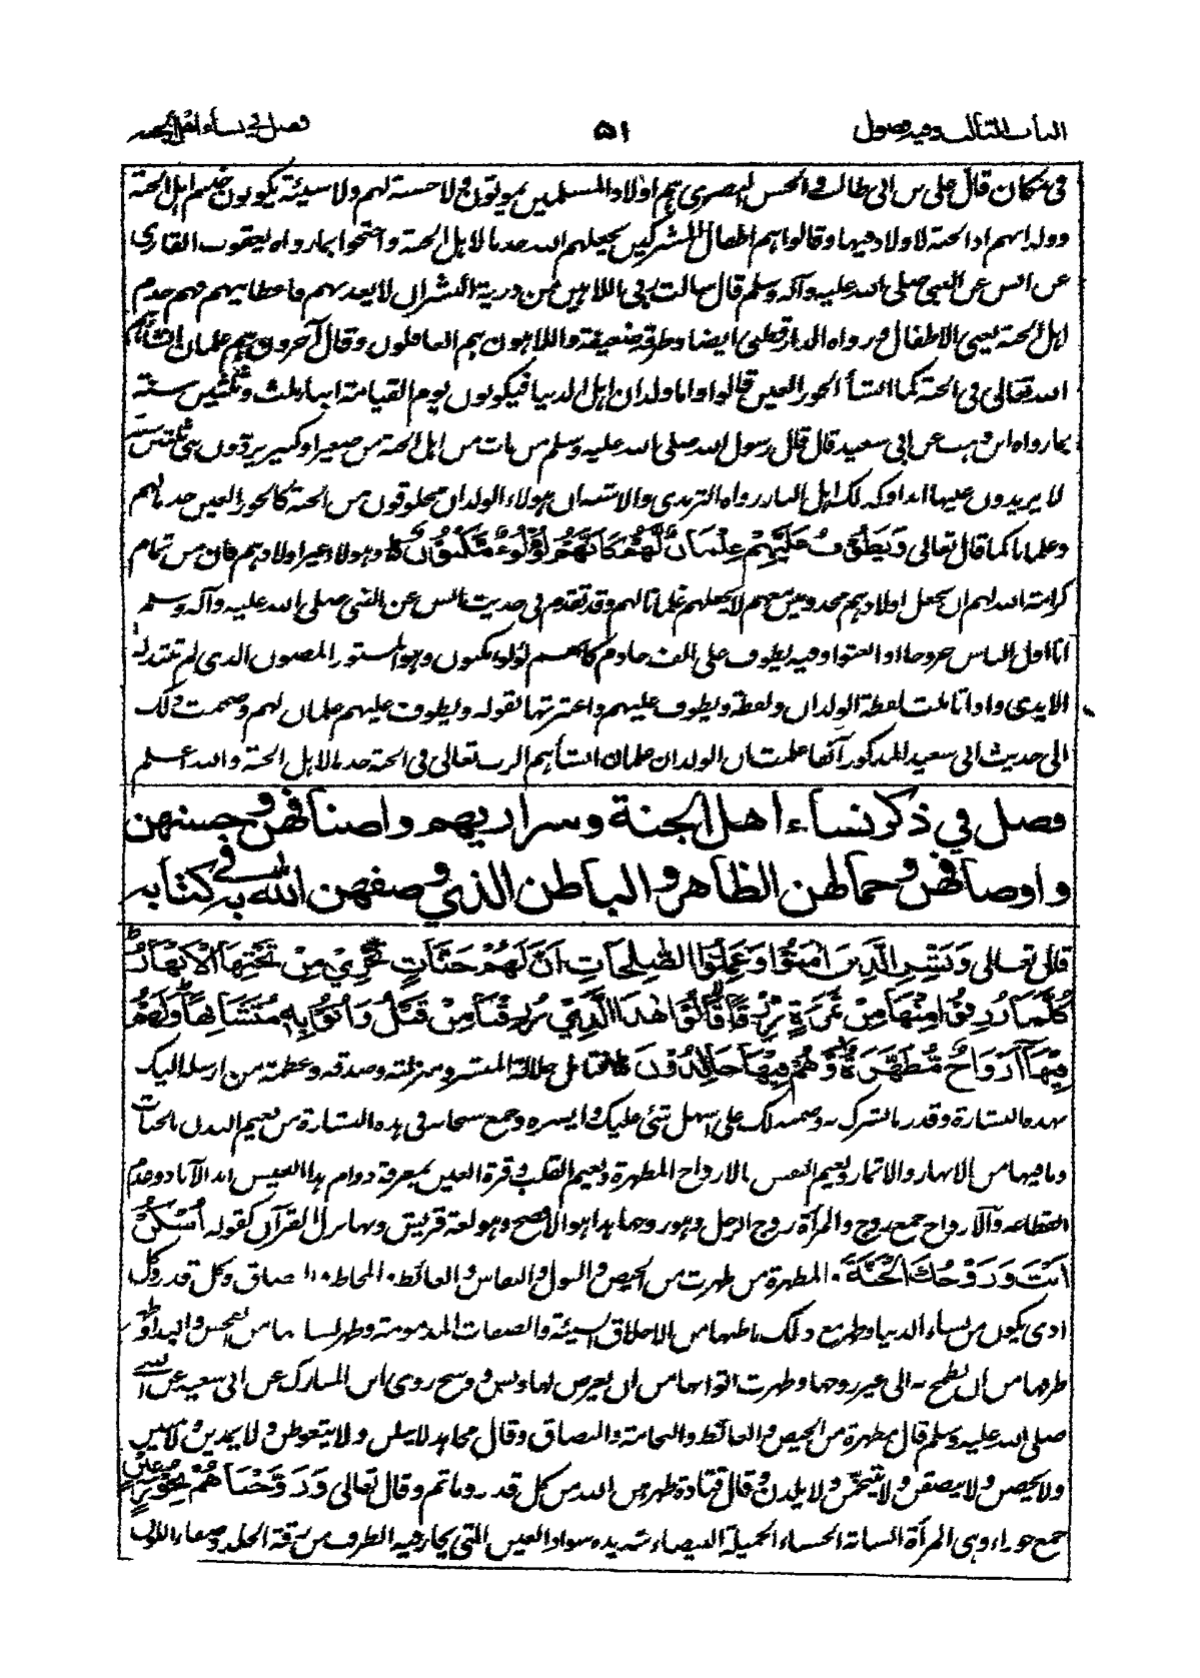 الباب الثالث وفيه فصول
۵۱
فصل في نساء اهل الجنة
في مكان قال علي بن ابي طالب والحسن البصري هم اولاد المسلمين يموتون ولا حسنة لهم ولا سيئة يكونون خدم اهل الجنة
وولدانهم اذ الجنة لا ولاد فيها وقالوا هم اطفال المشركين يجعلهم الله خدما لاهل الجنة واحتجوا بما رواه يعقوب القاري
عن انس عن النبي صلى الله عليه وآله وسلم قال سالت ربي اللاهين من ذرية البشر ان لا يعذبهم فاعطانيهم فهم خدم
اهل الجنة يعني الاطفال ورواه الدارقطني ايضا وطرقه ضعيفة واللاهون هم الغافلون وقال آخرون هم غلمان انشأهم
الله تعالى في الجنة كما انشأ الحور العين قالوا واما ولدان اهل الدنيا فيكونون يوم القيامة ابناء ثلث وثلثين سنة
بما رواه ابن وهب عن ابي سعيد قال قال رسول الله صلى الله عليه وسلم من مات من اهل الجنة من صغير او كبير يردون بني ثلثين سنة
لا يزيدون عليها ابدا وكذلك اهل النار رواه الترمذي والاشبه ان هؤلاء الولدان مخلوقون من الجنة كالحور العين خدما لهم
وغلمانا كما قال تعالى وَيَطُوفُ عَلَيْهِمْ غِلْمَانٌ لَّهُمْ كَأَنَّهُمْ لُؤْلُؤٌ مَّكْنُونٌ وهؤلاء غير اولادهم فان من تمام
كرامة الله لهم ان يجعل اولادهم مخدومين معهم لا يجعلهم غلمانا لهم وقد تقدم في حديث انس عن النبي صلى الله عليه وآله وسلم
انا اول الناس خروجا اذا بعثوا وفيه يطوف علي الف خادم كأنهم لؤلؤ مكنون وهو المستور المصون الذي لم تبتذله
الايدي واذا تاملت لفظة الولدان ولفظة ويطوف عليهم واعتبرتها بقوله ويطوف عليهم غلمان لهم وضممت ذلك
الى حديث ابي سعيد المذكور آنفا علمت ان الولدان غلمان انشأهم الرب تعالى في الجنة خدما لاهل الجنة والله اعلم
فصل في ذكر نساء اهل الجنة وسراريهم واصنافهن وحسنهن
واوصافهن وجمالهن الظاهر والباطن الذي وصفهن الله به في كتابه
قال تعالى وَبَشِّرِ الَّذِينَ آمَنُوا وَعَمِلُوا الصَّالِحَاتِ أَنَّ لَهُمْ جَنَّاتٍ تَجْرِي مِنْ تَحْتِهَا الْأَنْهَارُ
كُلَّمَا رُزِقُوا مِنْهَا مِنْ ثَمَرَةٍ رِّزْقًا قَالُوا هَٰذَا الَّذِي رُزِقْنَا مِنْ قَبْلُ وَأُتُوا بِهِ مُتَشَابِهًا وَلَهُمْ
فِيهَا أَزْوَاجٌ مُّطَهَّرَةٌ وَّهُمْ فِيهَا خَالِدُونَ فتامل جلالة المبشر ومنزلته وصدقه وعظمة من ارسله اليك
بهذه البشارة وقدر ما بشرك به وضمنه لك على اسهل شئ عليك وايسره وجمع سبحانه في هذه البشارة بين نعيم البدن بالجنات
وما فيها من الانهار والاثمار ونعيم النفس بالازواج المطهرة ونعيم القلب وقرة العين بمعرفة دوام هذا العيش ابد الآباد وعدم
انقطاعه والازواج جمع زوج والمرأة زوج الرجل وهو زوجها هذا هو الافصح وهو لغة قريش وبها نزل القرآن كقوله اُسْكُنْ
اَنْتَ وَزَوْجُكَ الْجَنَّةَ المطهرة من طهرت من الحيض والبول والنفاس والغائط والمخاط والبصاق وكل قذر وكل
اذى يكون من نساء الدنيا وطهر مع ذلك باطنها من الاخلاق السيئة والصفات المذمومة وطهر لسانها من الفحش والبذاء وطهر
طرفها من ان تطمح به الى غير زوجها وطهرت اثوابها من ان يعرض لها دنس ووسخ روى ابن المبارك عن ابي سعيد عن النبي
صلى الله عليه وسلم قال مطهرة من الحيض والغائط والنخامة والبصاق وقال مجاهد لا يبلن ولا يتغوطن ولا يمذين ولا يمنين
ولا يحضن ولا يبصقن ولا يتنخمن ولا يلدن وقال قتادة طهرهن الله من كل قذر وماثم وقال تعالى وَزَوَّجْنَاهُمْ بِحُورٍ عِينٍ
جمع حوراء وهي المرأة الشابة الحسناء الجميلة البيضاء شديدة سواد العين التي يحار فيه الطرف من رقة الجلد وصفاء اللون